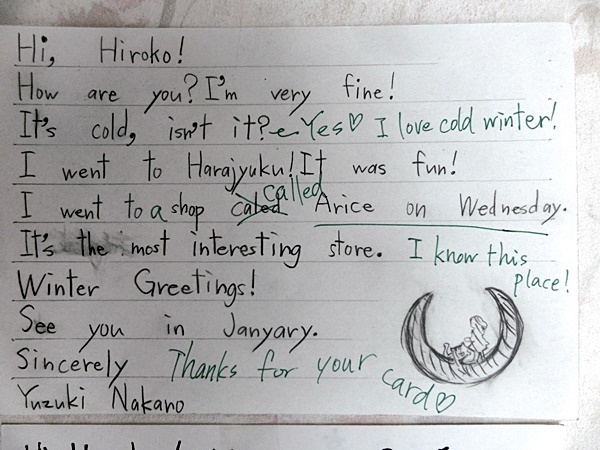 Hi, Hiroko!
How are you? I'm very fine!
It's cold, isn't it? Yes♡ I love cold winter!
I went to Harajyuku! It was fun!
called
I went to a shop Caled Arice on Wednesday.
It's the most interesting store. I know this place!
Winter Greetings!
See you in Janyary.
Sincerely Thanks for your card♡
Yuzuki Nakano